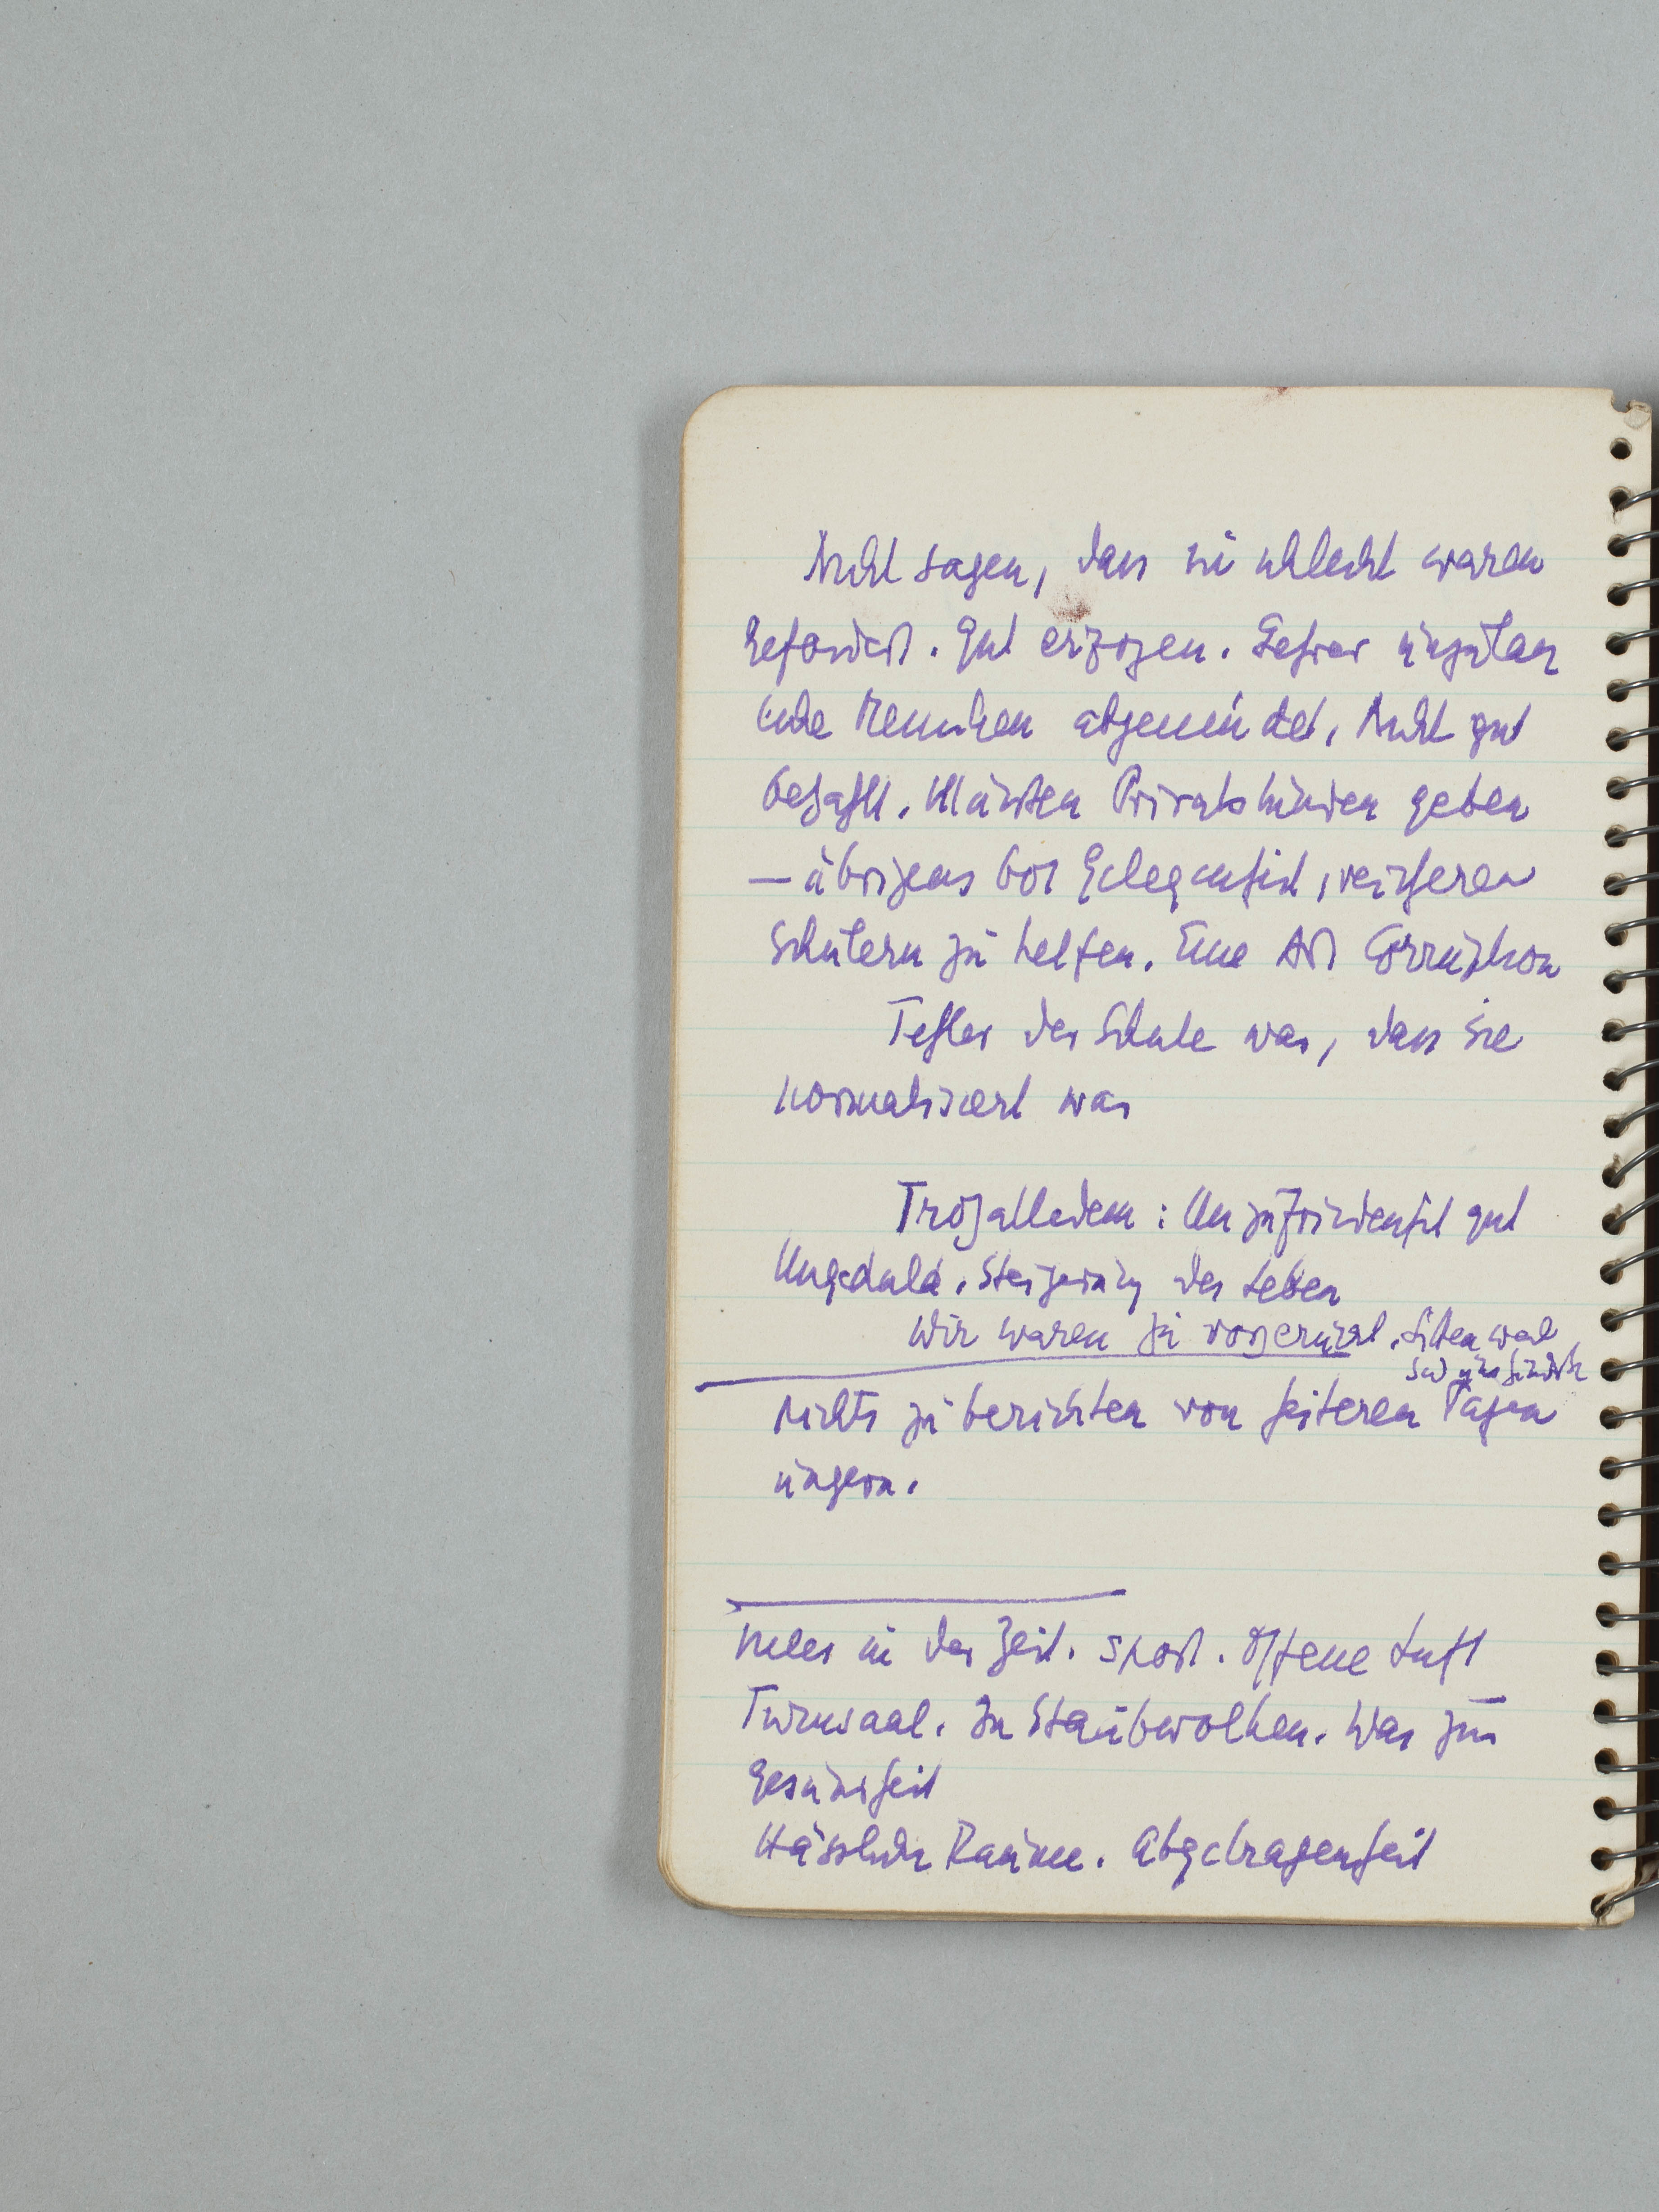 Nicht sagen, dass sie schlecht waren
Gefordert. Gut erzogen. Lehrer unzuläng
liche Menschen abgemündet. Nicht gut
bezahlt. Mussten Privatstunden geben
— übrigens bot Gelegenheit, reicheren
Schülern zu helfen. Eine Art Corruption
Fehler der Schule war, dass sie
normalisiert war
Trozalledem: Unzufriedenheit gut
Ungeduld. Steigerung des Leben
Wir waren zu vorgerückt.
Nichts zu berichten von heiteren Tagen
ungern.
Vieles in der Zeit. Sport. Offene Luft
Turnsaal. In Staubwolken. War zur
Gesundheit
Hässliche Räume. Abgetragenheit